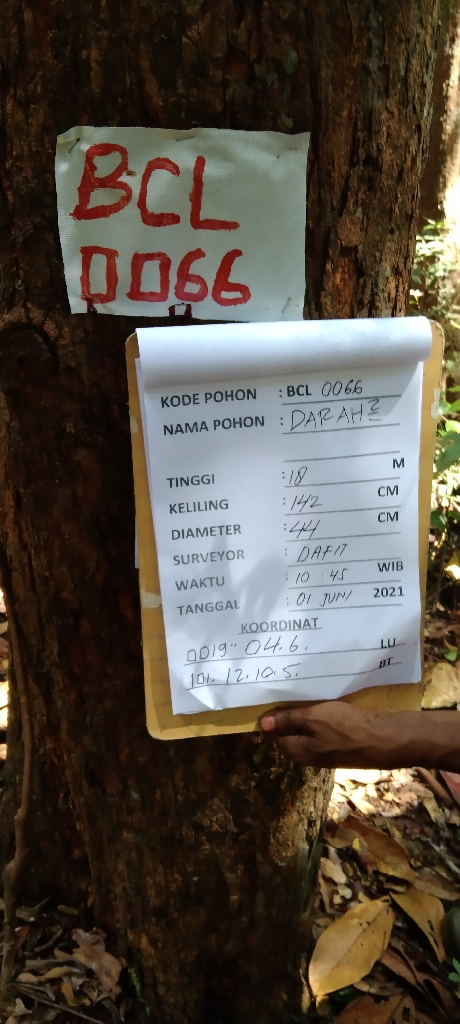 BCL
0066
KODE POHON : BCL 0066
NAMA POHON : DARAH2
TINGGI : 18 M
KELILING : 142 CM
DIAMETER : 44 CM
SURVEYOR : DAFIT
WAKTU : 10 : 45 WIB
TANGGAL : 01 JUNI 2021
KOORDINAT
0019" 04.6. LU
101. 12. 10. 5. BT